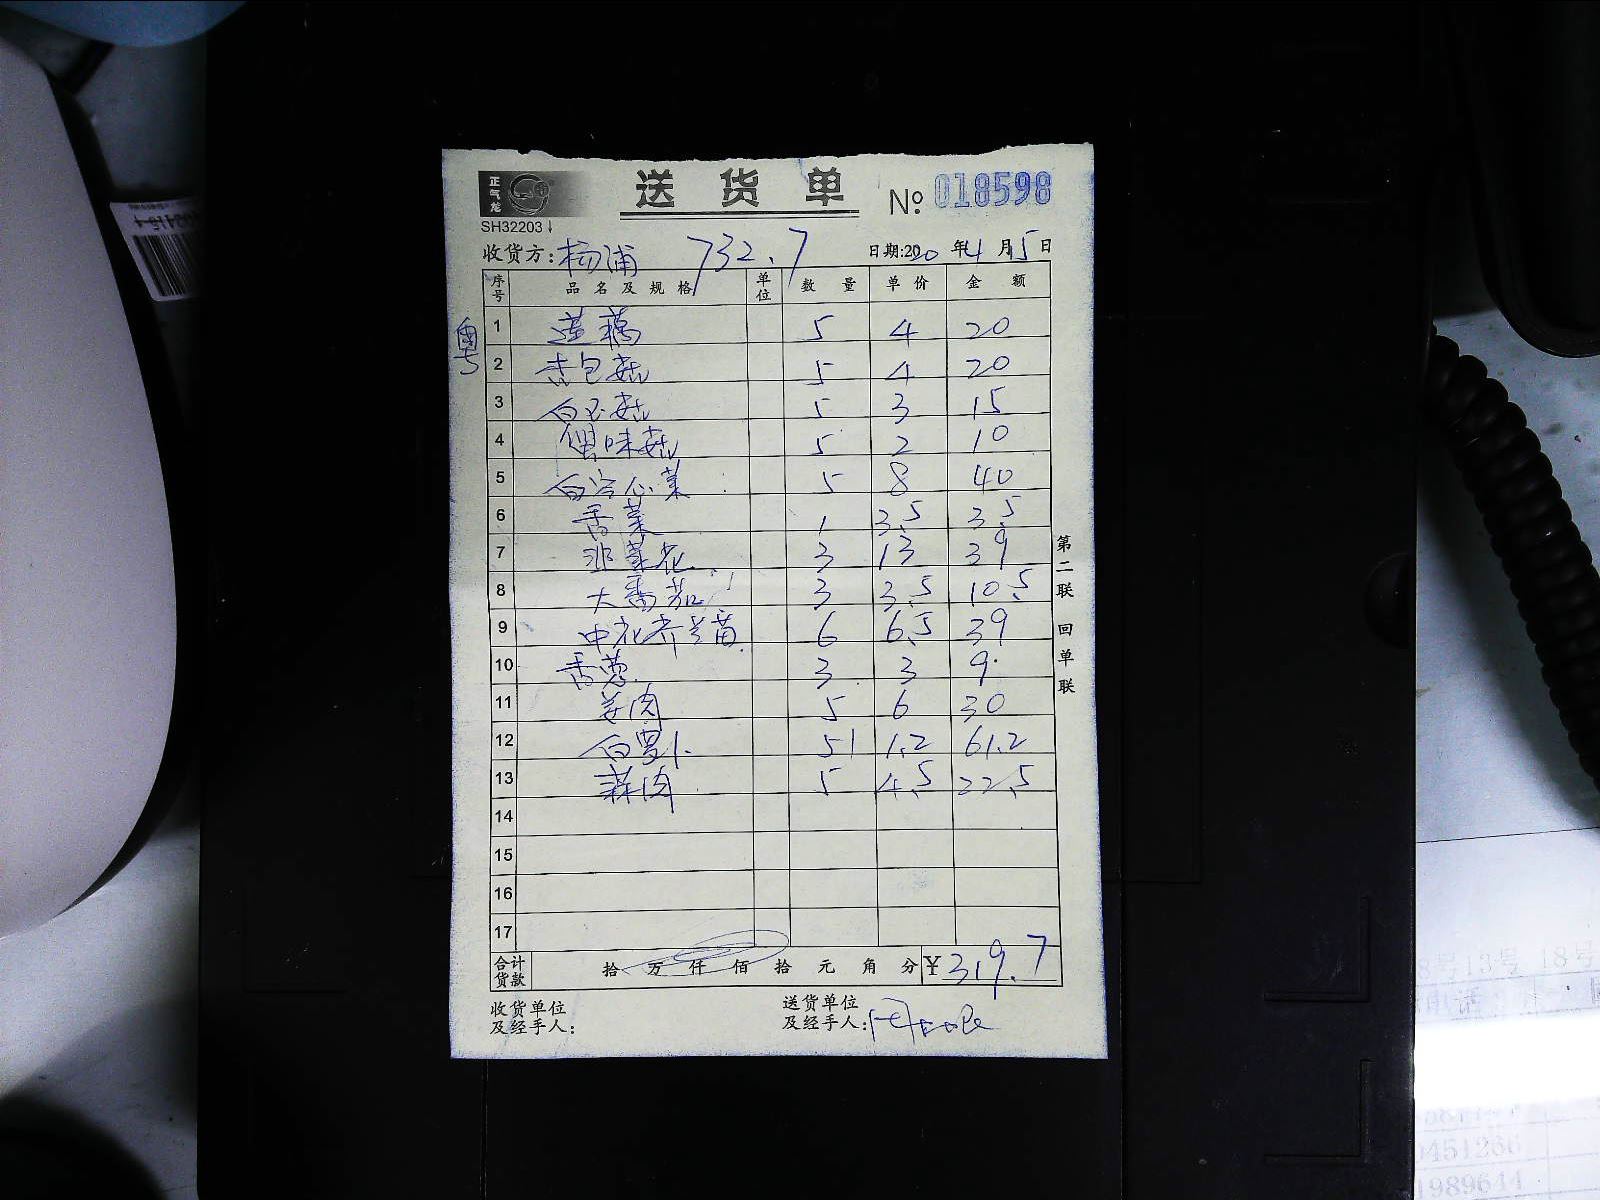 正气龙
送货单
№ 018598
SH32203
收货方: 杨浦 732.7 日期:2020年4月15日
序号 品名及规格 单位 数量 单价 金额
粤
1 莲藕 5 4 20
2 杏包菇 5 4 20
3 白玉菇 5 3 15
4 蟹味菇 5 2 10
5 白空心菜 5 8 40
6 香菜 1 3.5 3.5
7 韭菜花 3 13 39
8 大番茄 3 3.5 10.5
9 中花荞兰苗 6 6.5 39
10 香葱 3 3 9
11 姜肉 5 6 30
12 白萝卜 51 1.2 61.2
13 蒜肉 5 4.5 22.5
14
15
16
17
合计货款 拾 万 仟 佰 拾 元 角 分 ¥ 319.7
收货单位及经手人:
送货单位及经手人:
第二联 回单联
8号13号 18号
0451236
1989644